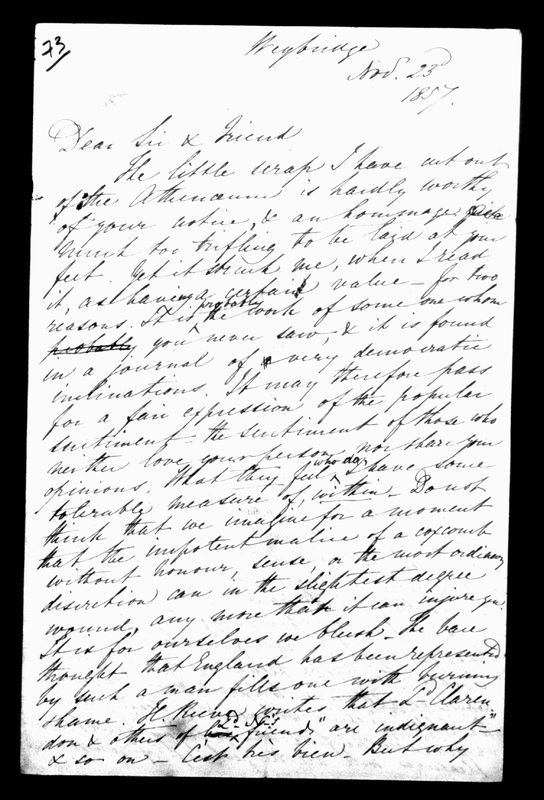 23
Weybridge
Nov. 23d
1857.
Dear Sir & Friend
The little scrap I have cut out
of the Athenaeum is hardly worthy
of your notice, & an hommage
much too trifling to be laid at your
feet. Yet it struck me, when I read
it, as having a certain value – for two
reasons. It is probably the work of some one whom
probably you never saw, & it is found
in a journal of very democratic
inclinations. It may therefore pass
for a fair expression of the popular
sentiment – the sentiment of those who
neither love your person nor share your
opinions. What they feel who do, I have some
tolerable measure of, within – Do not
think that we imagine for a moment
that the impotent malice of a coxcomb
without honour, sense, or the most ordinary
discretion can in the slightest degree
wound, any more that it can injure you.
It is for ourselves we blush – The bare
thought that England has been represented
by such a man fills one with burning
shame. H. Reeve writes that Ld. Claren
don & others of Ld. N's friends "are indignant"
& so on – C'est très bien – But why